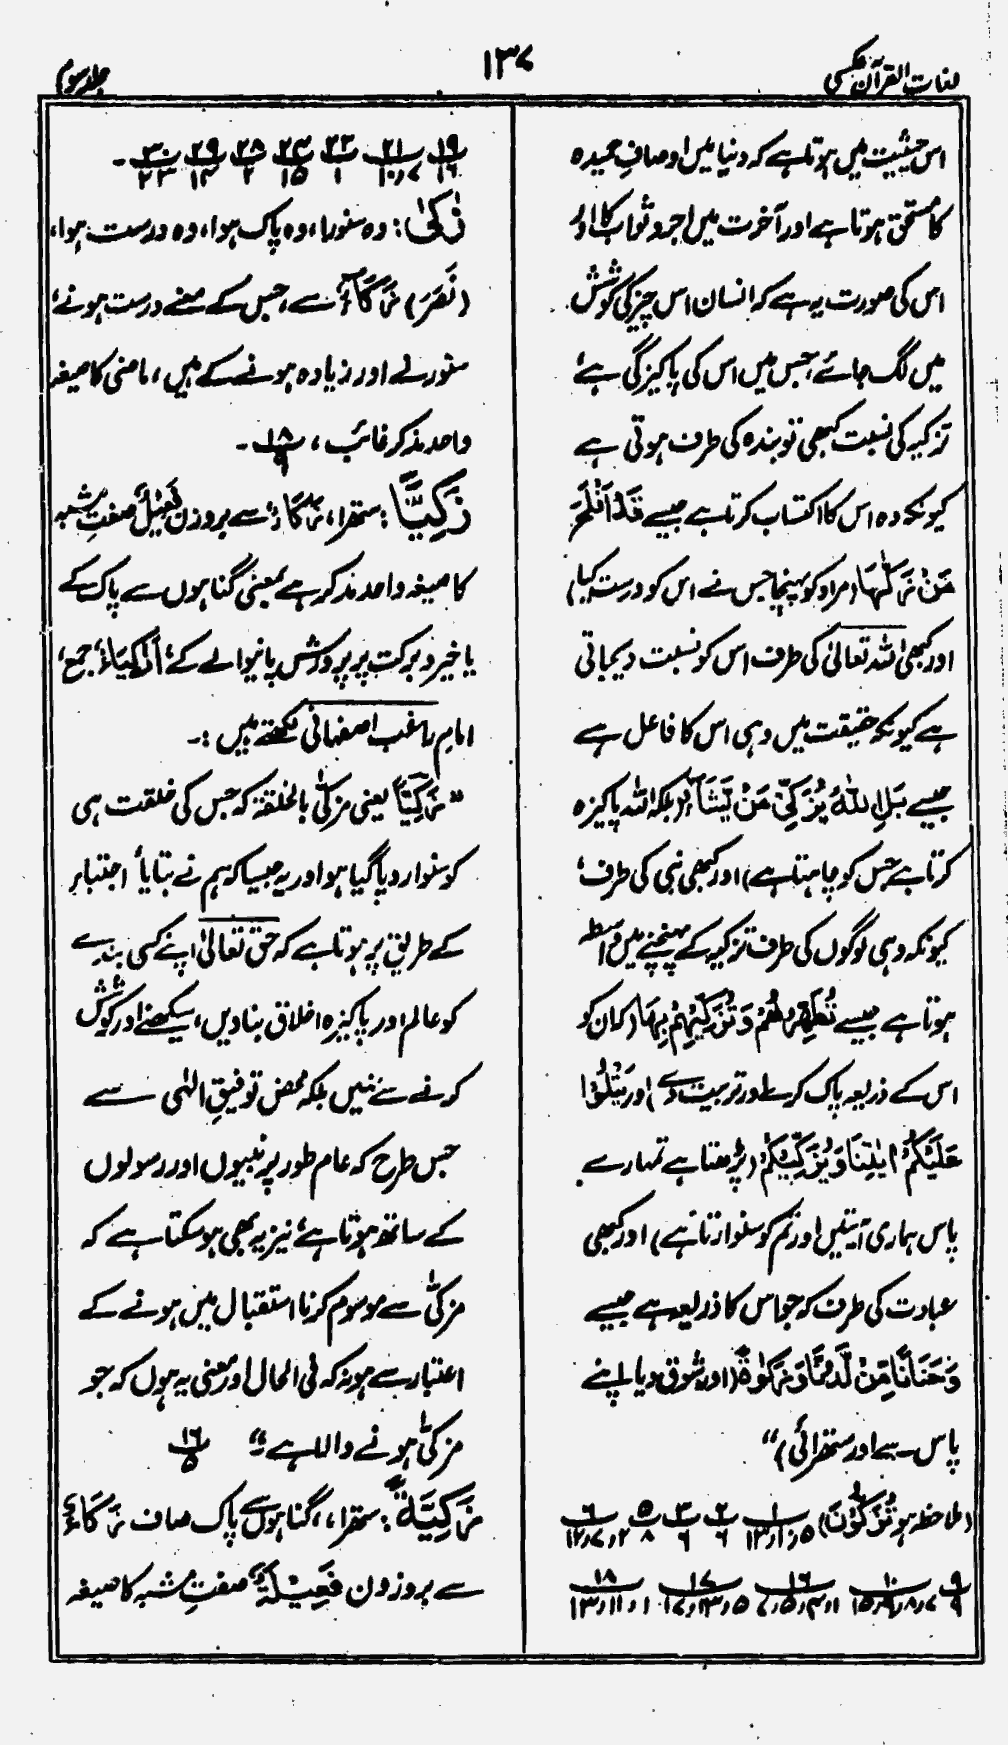 لغات القرآن عکسی
۱۳۷
جلد سوم
اس حیثیت میں ہوتا ہے کہ دنیا میں اوصافِ حمیدہ
کا مستحق ہوتا ہے اور آخرت میں اجر و ثواب کا اور
اس کی صورت یہ ہے کہ انسان اس چیز کی کوشش
میں لگ جائے، جس میں اس کی پاکیزگی ہے،
تزکیہ کی نسبت کبھی تو بندہ کی طرف ہوتی ہے
کیونکہ وہ اس کا اکتساب کرتا ہے جیسے قَدْ اَفْلَحَ
مَنْ زَكّٰهَا (مراد کو پہنچا جس نے اس کو درست کیا)
اور کبھی اللہ تعالیٰ کی طرف اس کو نسبت دیجاتی
ہے کیونکہ حقیقت میں وہی اس کا فاعل ہے
جیسے بَلِ اللّٰهُ يُزَكِّيْ مَنْ يَّشَآءُ (بلکہ اللہ پاکیزہ
کرتا ہے جس کو چاہتا ہے) اور کبھی نبی کی طرف،
کیونکہ وہی لوگوں کی طرف تزکیہ کے پہنچنے میں واسطہ
ہوتا ہے جیسے تُطَهِّرُهُمْ وَتُزَكِّيْهِمْ بِهَا (کہ ان کو
اس کے ذریعہ پاک کرے اور تربیت دے) اور يَتْلُوْا
عَلَيْكُمْ اٰيٰتِنَا وَيُزَكِّيْكُمْ (پڑھتا ہے تمہارے
پاس ہماری آیتیں اور تم کو سنوارتا ہے) اور کبھی
عبادت کی طرف کہ جو اس کا ذریعہ ہے جیسے
وَحَنَانًا مِّنْ لَّدُنَّا وَزَكٰوةً (اور شوق دیا اپنے
پاس سے اور ستھرائی)“
(ملاحظہ ہو تُزَكُّوْنَ) ۱/۵،۱۰،۱۳ ۲/۶ ۳/۶ ۵/۸ ۶/۲،۷،۱۲
۹/۹ ۱۰/۷،۸،۹،۱۵ ۱۶/۱،۳،۵،۷ ۱۷/۵،۱۳،۱۷ ۱۸/۱،۱۱،۱۳
۱۹/۱۶ ۲۱/۷،۱۰ ۲۲/۱ ۲۴/۱۵ ۲۸/۲ ۲۹/۱۴ ۳۰/۲۳۔
زَكٰى: وہ سنورا، وہ پاک ہوا، وہ درست ہوا،
(نَصَرَ) زَكَاءٌ سے، جس کے معنے درست ہونے،
سنورنے اور زیادہ ہونے کے ہیں، ماضی کا صیغہ
واحد مذکر غائب، ۱۸/۹۔
زَكِيًّا: ستھرا، زَكَاءٌ سے بروزن فَعِيْلٌ صفتِ مشبہ
کا صیغہ واحد مذکر ہے بمعنی گناہوں سے پاک کے
یا خیر و برکت پر پرورش پانیوالے کے، اَزْكِيَاءُ جمع،
امام راغب اصفہانی لکھتے ہیں :۔
”زَكِيًّا یعنی مزکّٰی بالخلقۃ کہ جس کی خلقت ہی
کو سنوار دیا گیا ہو اور یہ جیسا کہ ہم نے بتایا، اجتباء
کے طریق پر ہوتا ہے کہ حق تعالیٰ اپنے کسی بندے
کو عالم اور پاکیزہ اخلاق بنادیں، سیکھنے اور کوشش
کرنے سے نہیں بلکہ محض توفیقِ الٰہی سے
جس طرح کہ عام طور پر نبیوں اور رسولوں
کے ساتھ ہوتا ہے، نیز یہ بھی ہوسکتا ہے کہ
مزکّٰی سے موسوم کرنا استقبال میں ہونے کے
اعتبار سے ہو نہ کہ فی الحال اور معنی یہ ہوں کہ جو
مزکّٰی ہونے والا ہے“ ۱۶/۵
زَكِيَّةً: ستھرا، گناہوں سے پاک صاف زَكَاءٌ
سے بروزن فَعِيْلَةٌ صفتِ مشبہ کا صیغہ